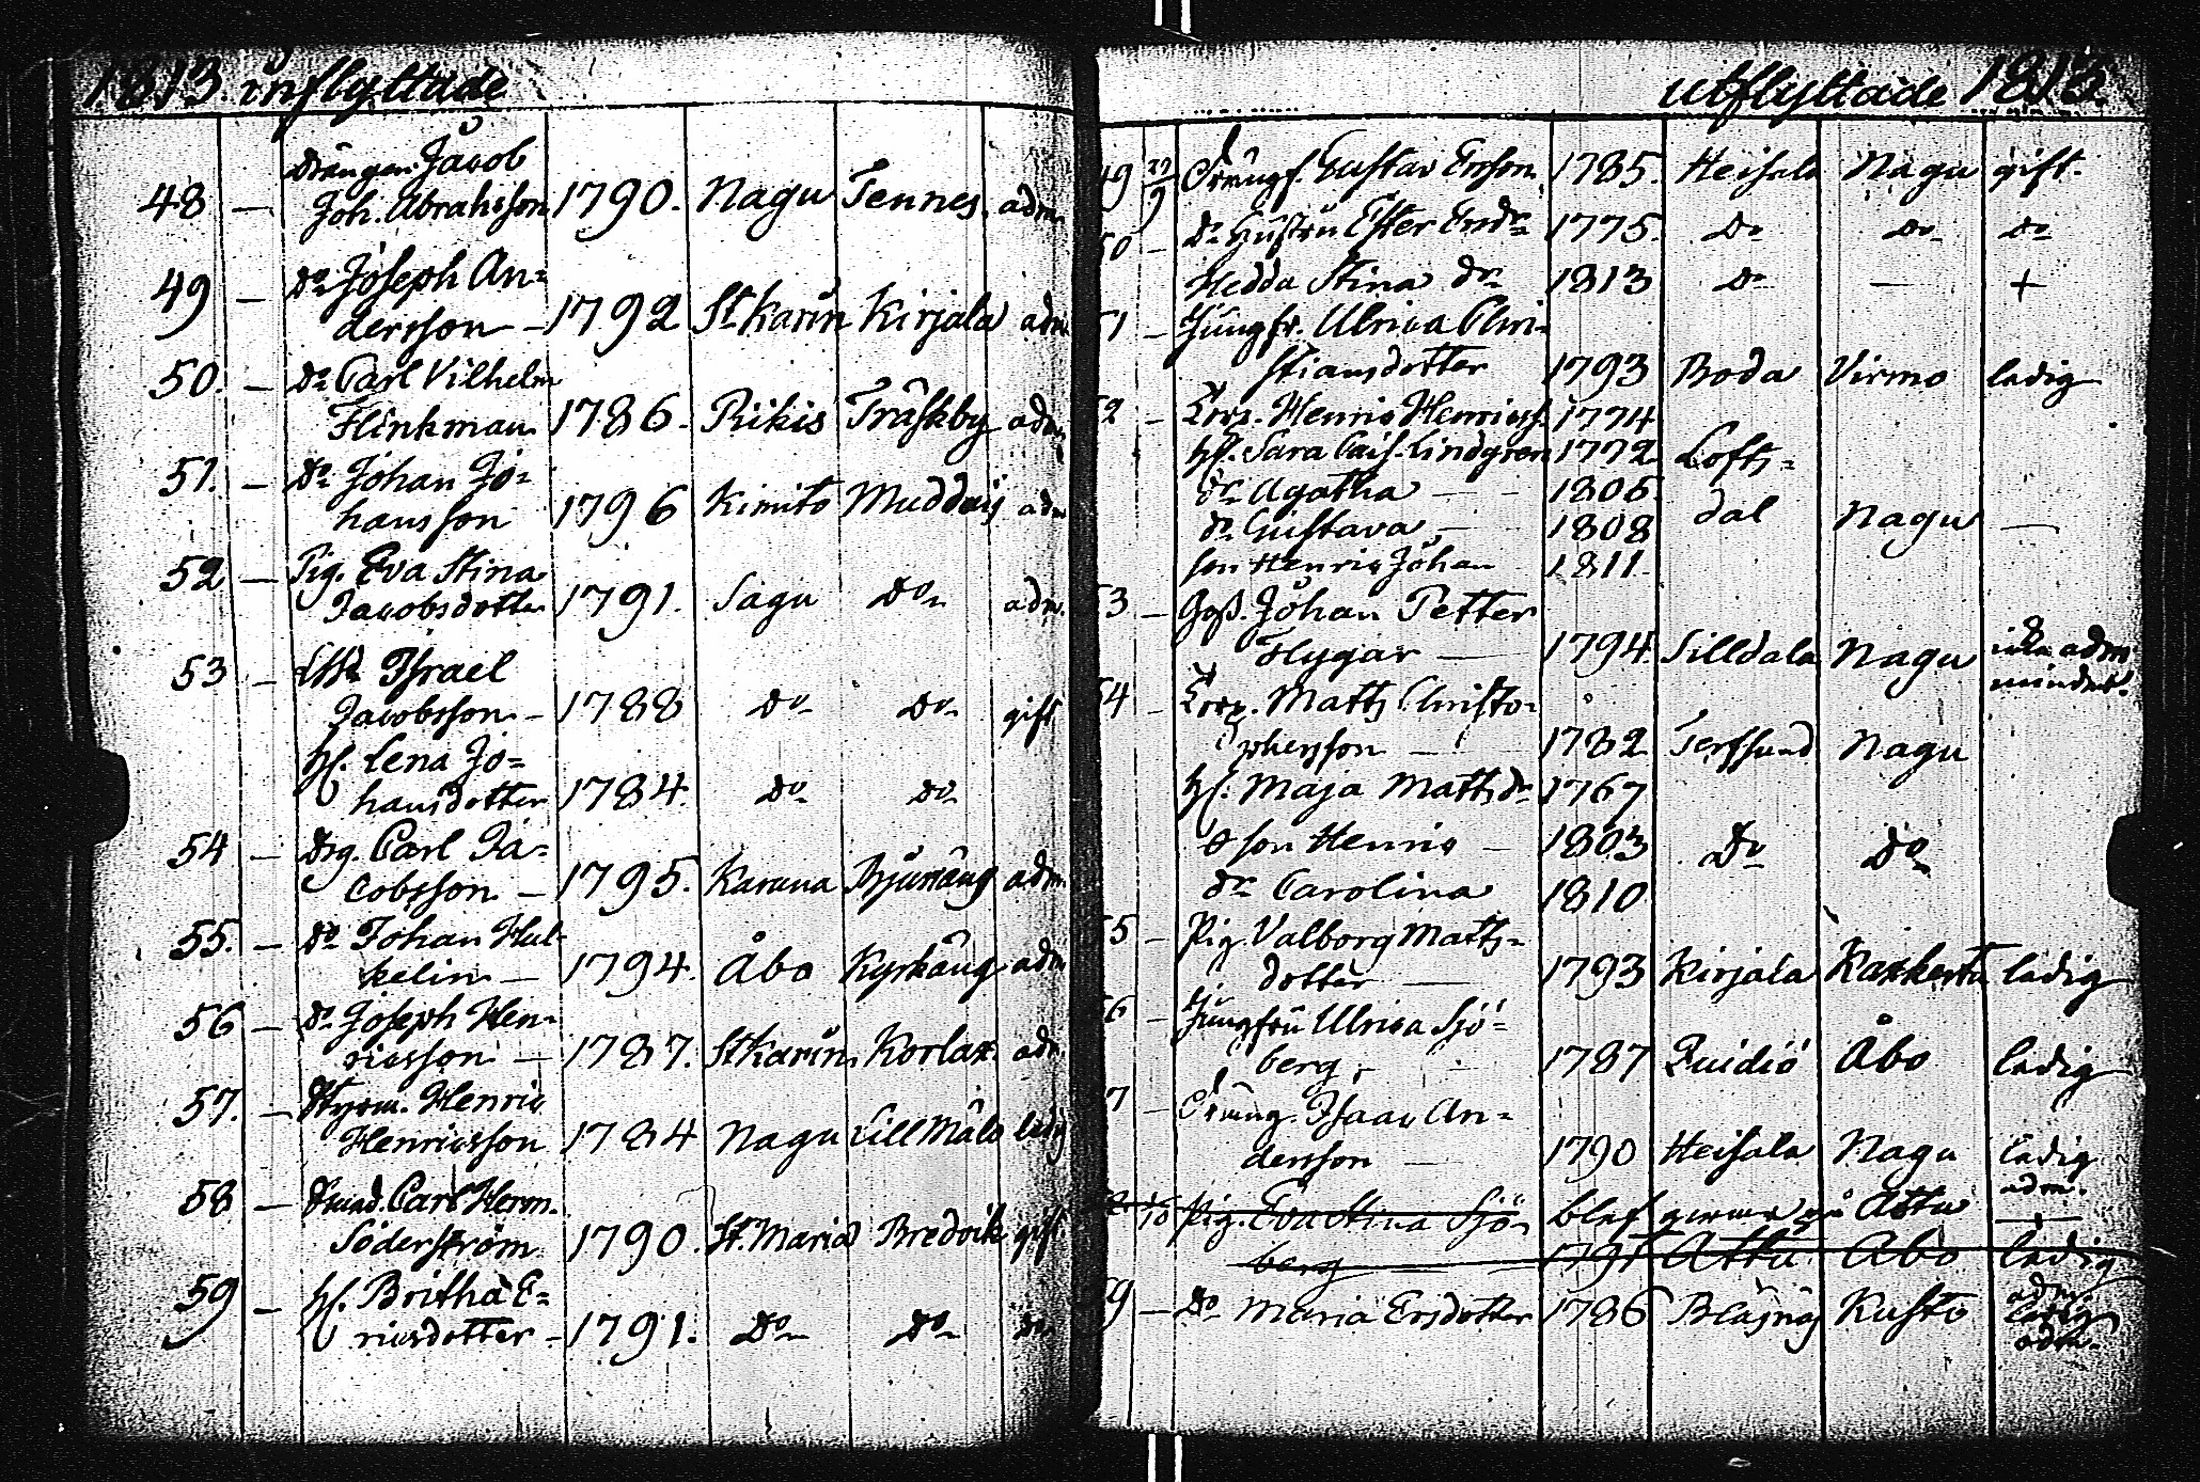 1813. inflyttade
48 — Drängen Jacob
Joh. Abrahsson 1790. Nagu Tennes. adm.
49 — Do Joseph An=
dersson — 1792 St Karin Kirjala adm
50. — Do Carl Vilhelm
Flinkman 1786. Pikis Träskby adm
51. — Do Johan Jo=
hansson 1796 Kimito Muddais adm
52 — Pig. Eva Stina
Jacobsdotter 1791. Sagu Do adm.
53 — Israel
Jacobsson — 1788 Do Do gift
hs. Lena Jo=
hansdotter 1784. Do Do
54 — Drg. Carl Ja=
cobsson — 1795. Karuna Bjuräng adm
55. — Do Johan Hul-
kelin — 1794. Åbo Kyrkäng adm
56 — Do Joseph Hen-
ricsson — 1787. St Karin Korlax. adm.
57. — Styrm. Henric
Henricsson 1784 Nagu Lillmälö ledig
58 — Carl Herm.
Söderström 1790. St. Maria Bredvik gift
59 — hs. Britha E=
ricsdotter — 1791. Do Do Do
utflyttade 1813.
49 22/9 Drängs. Gustav Ersson 1785. Heisala Nagu gift.
50 — Do Hustru Ester Ersdr 1775. Do Do Do
Hedda Stina dr 1813 Do — +
51 — Jungfr. Ulrica Chri-
stiansdotter 1793 Boda Virmo ledig
52 — Torp. Henric Henricss. 1774
hs. Sara Cais. Lindgren 1772 Lofts=
dr Agatha — 1805.
dal Nagu —
dr Gustava — 1808
son Henric Johan 1811.
53 — Goss. Johan Petter
Flygar — 1794. Silldala Nagu icke adm
54 — Torp. Matts Christo-
phersson — 1782 Terfsund Nagu
hs. Maja Mattsdr 1767
son Henric — 1803 Do Do
dr Carolina 1810
55 — Pig. Valborg Matts-
dotter — 1793 Kirjala Kaxkerta ledig
56 — Jungfru Ulrica Sjö-
berg, — 1787 Qvidiö Åbo ledig
57 — Dräng. Isaac An=
dersson — 1790 Heisala Nagu ledig
adm.
58 1/10 Pig. Eva Stina Sjö- blef qvar på Attu —
berg 1791 Attu Åbo ledig
adm.
59 — Do Maria Ersdotter 1786 Bläsnäs Kusto ledig
adm.